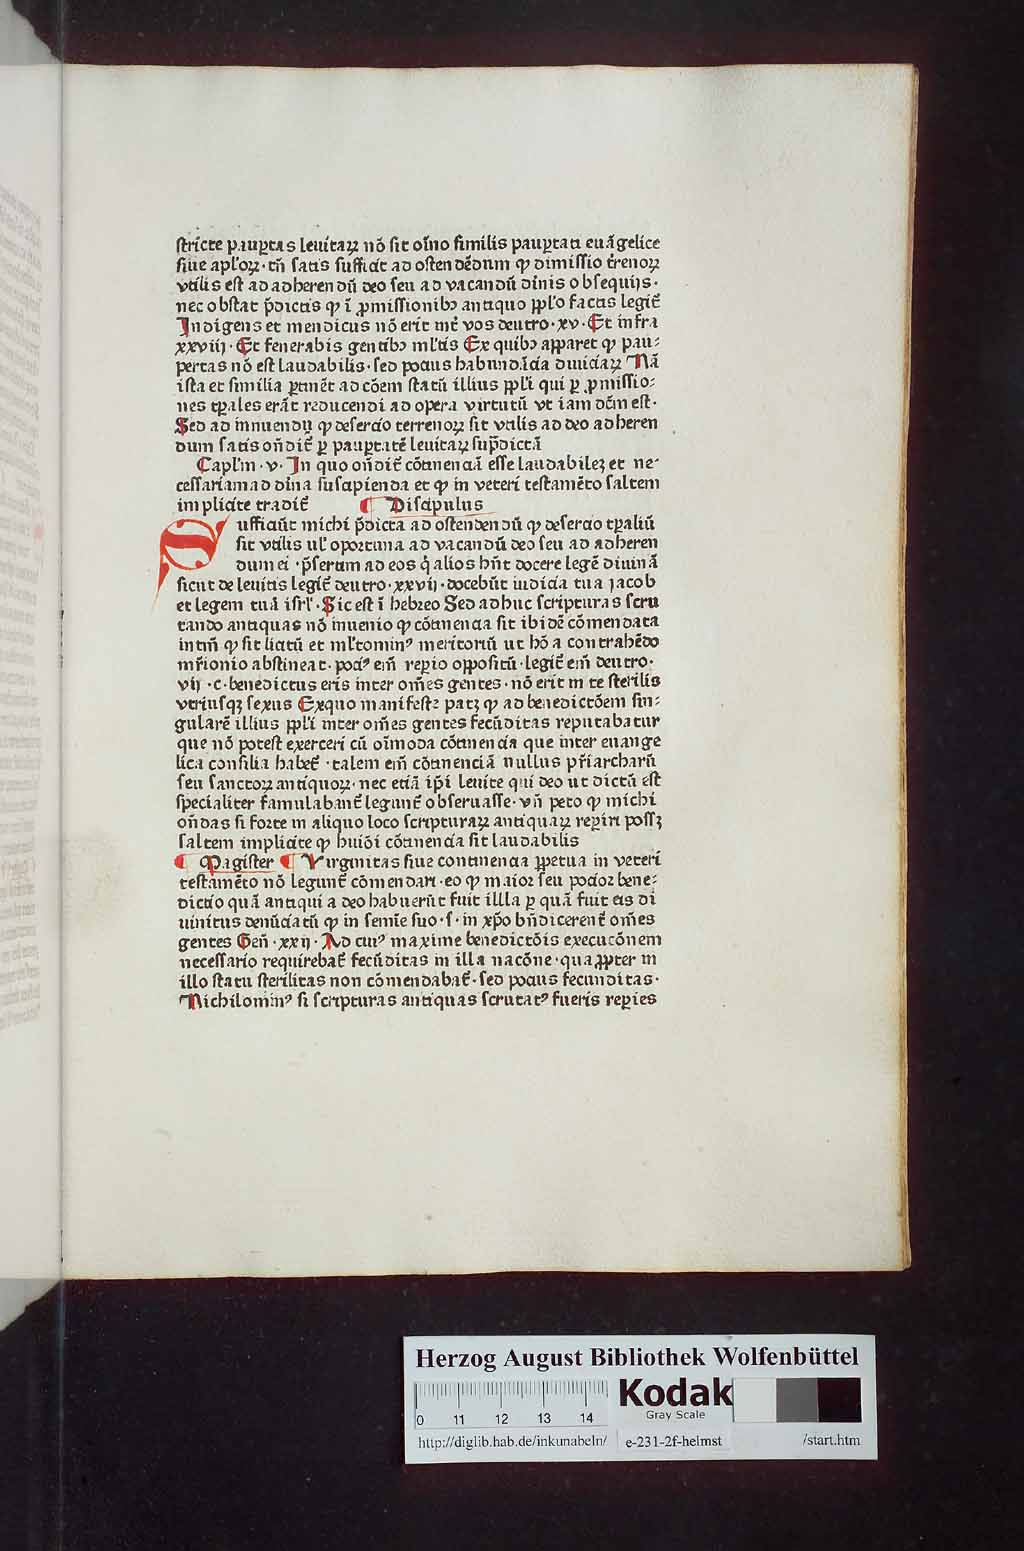 stricte paup̱tas leuitaꝝ nō sit oīno similis paup̱tati euāgelice
siue apl'oꝝ · tn̄ satis sufficit ad ostendēdum ꝙ dimissio t̄renoꝝ
vtilis est ad adherendū deo seu ad vacandū diuinis obsequijs ·
nec obstat p̄dictis ꝙ ī ꝓmissionibꝫ antiquo ppl'o factis legit̄
Indigens et mendicus nō erit int̄ vos deutro · xv · Et infra
xxviij · Et fenerabis gentibꝫ ml'tis Ex quibꝫ apparet ꝙ pau-
pertas nō est laudabilis · sed pocius habundācia diuiciaꝝ Nā
ista et similia ꝑtinēt ad cōem statū illius ppl'i qui ꝑ ꝓmissio-
nes tp̱ales erāt reducendi ad opera virtutū vt iam dc̄m est ·
Sed ad innuendū ꝙ desercio terrenoꝝ sit vtilis ad deo adheren
dum satis on̄dit̄ ꝑ paup̱tatē leuitaꝝ sup̄dictā
Capl'm · v · In quo on̄dit̄ cōtinenciā esse laudabilem et ne-
cessariam ad diuina suscipienda et ꝙ in veteri testamēto saltem
implicite tradit̄ ¶ Discipulus
Sufficiūt michi p̄dicta ad ostendendū ꝙ desercio tp̱aliū
sit vtilis ul' oportuna ad vacandū deo seu ad adheren
dum ei · p̄sertim ad eos q̄ alios hn̄t docere legē diuinā
sicut de leuitis legit̄ deutro · xxvij · docebūt iudicia tua jacob
et legem tuā isrl' · Sic est ī hebreo Sed adhuc scripturas scru
tando antiquas nō inuenio ꝙ cōtinencia sit ibidē cōmendata
intm̄ ꝙ sit licitū et ml'tominꝰ meritoriū ut hō a contrahēdo
mr̄ionio abstineat · pociꝰ em̄ rep̱io oppositū · legit̄ em̄ deutro ·
vij · c · benedictus eris inter om̄es gentes · nō erit in te sterilis
vtriusqꝫ sexus Exquo manifeste patꝫ ꝙ ad benedictōem sin-
gularē illius ppl'i inter om̄es gentes fecūditas reputabatur
que nō potest exerceri cū oīmoda cōtinencia que inter euange
lica consilia habet̄ · talem em̄ cōtinenciā nullus pr̄iarcharū
seu sanctoꝝ antiquoꝝ · nec etiā ip̄i leuite qui deo ut dictū est
specialiter famulabant̄ legunt̄ obseruasse · vn̄ peto ꝙ michi
on̄das si forte in aliquo loco scripturaꝝ antiquaꝝ rep̱iri possꝫ
saltem implicite ꝙ huiōi cōtinencia sit laudabilis
¶ Magister ¶ Virginitas siue continencia ꝑpetua in veteri
testamēto nō legunt̄ cōmendari · eo ꝙ maior seu pocior bene-
dictio quā antiqui a deo habuerūt fuit illla ꝑ quā fuit eis di
uinitus denūciatū ꝙ in semīe suo · s · in xp̄o bn̄dicerent̄ om̄es
gentes Gen̄ · xxij · Ad cuiꝰ maxime benedictōis execucōnem
necessario requirebat̄ fecūditas in illa nacōne · quaꝓpter in
illo statu sterilitas non cōmendabat̄ · sed pocius fecunditas ·
Nichilominꝰ si scripturas antiquas scrutatꝰ fueris rep̱ies
Herzog August Bibliothek Wolfenbüttel
Kodak
Gray Scale
0 11 12 13 14
http://diglib.hab.de/inkunabeln/ e-231-2f-helmst /start.htm